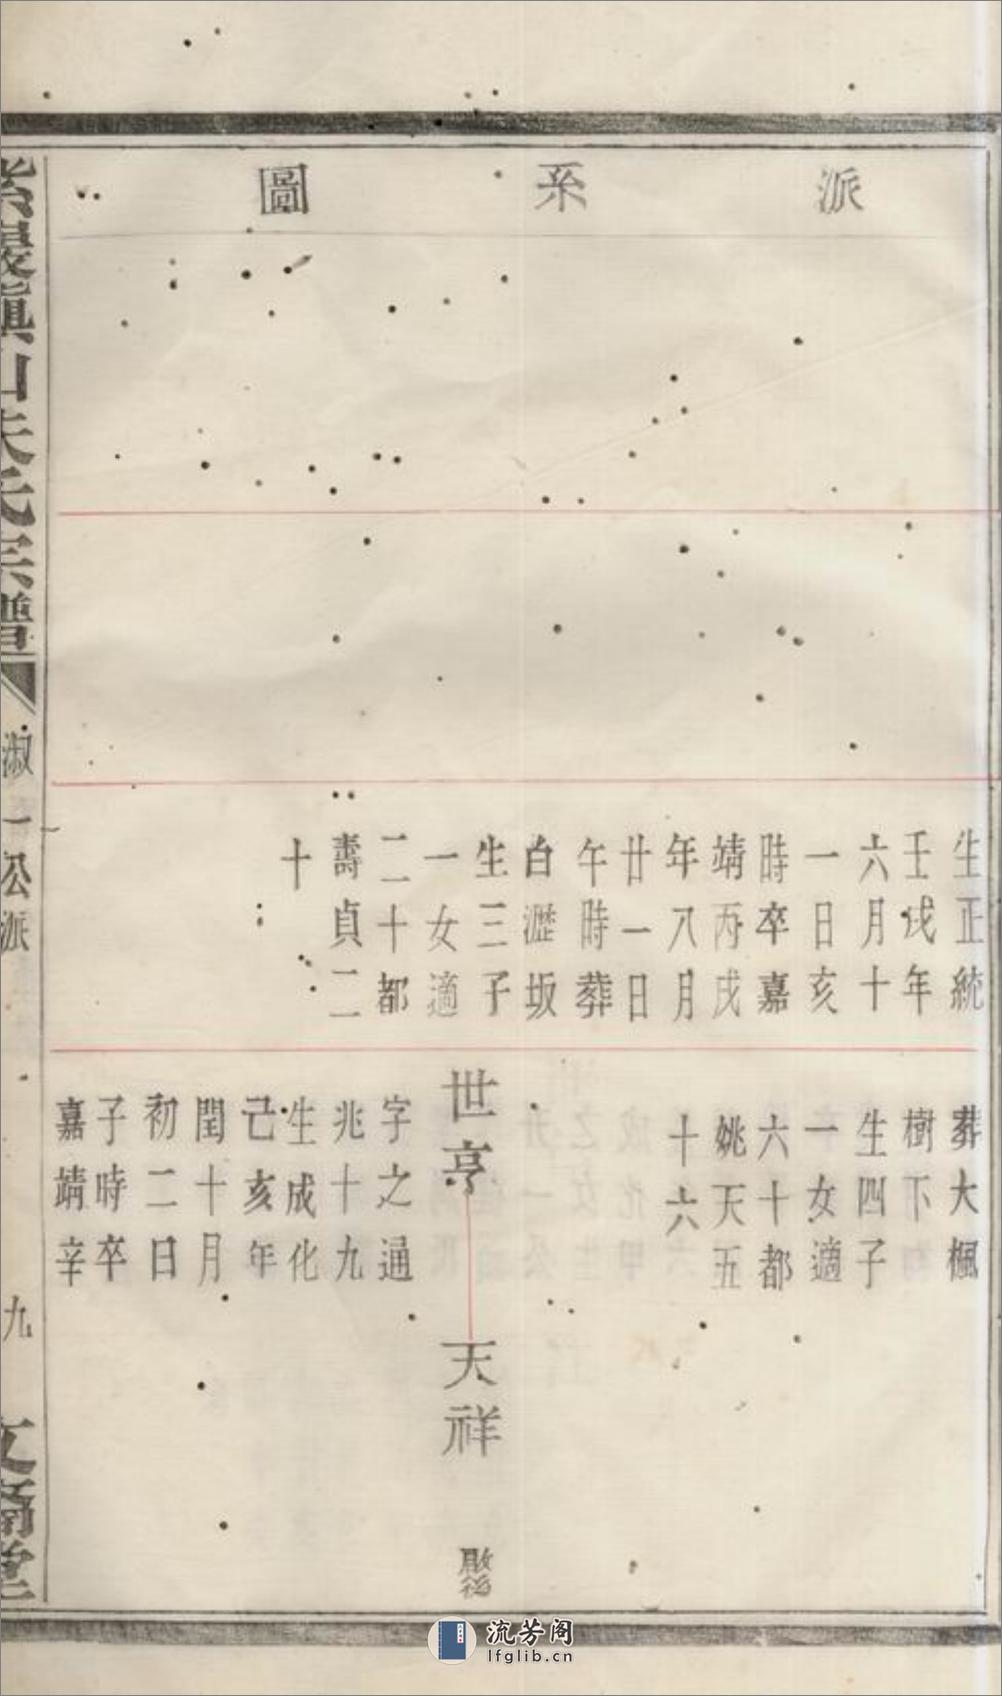 派系圖
生正統
壬戌年
六月十
一日亥
時卒嘉
靖丙戌
年八月
廿一日
午時葬
白瀝坂
生三子
一女適
二十都
壽貞二
十
葬大楓
樹下
生四子
一女適
六十都
姚天五
十六
世亨
字之通
兆十九
生成化
己亥年
閏十月
初二日
子時卒
嘉靖辛
天祥
山朱氏宗譜
淑一公派
九
流芳阁
lfglib.cn